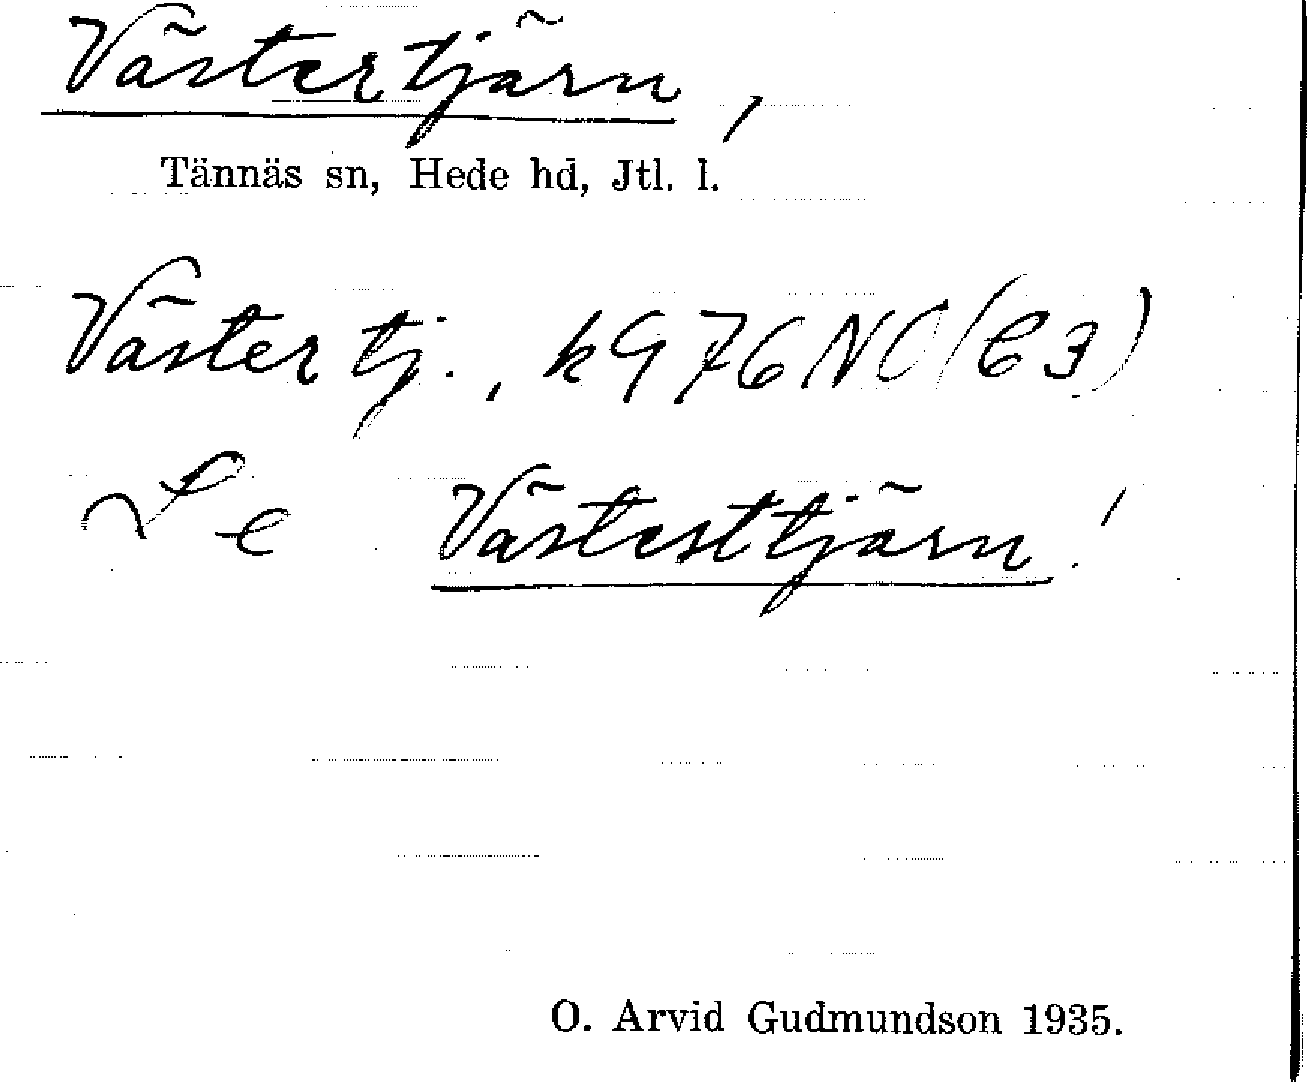 Västertjärn,
Tännäs sn, Hede hd, Jtl. l.
Väster tj., k 976 NC (C3)
Se Västesttjärn!
O. Arvid Gudmundson 1935.